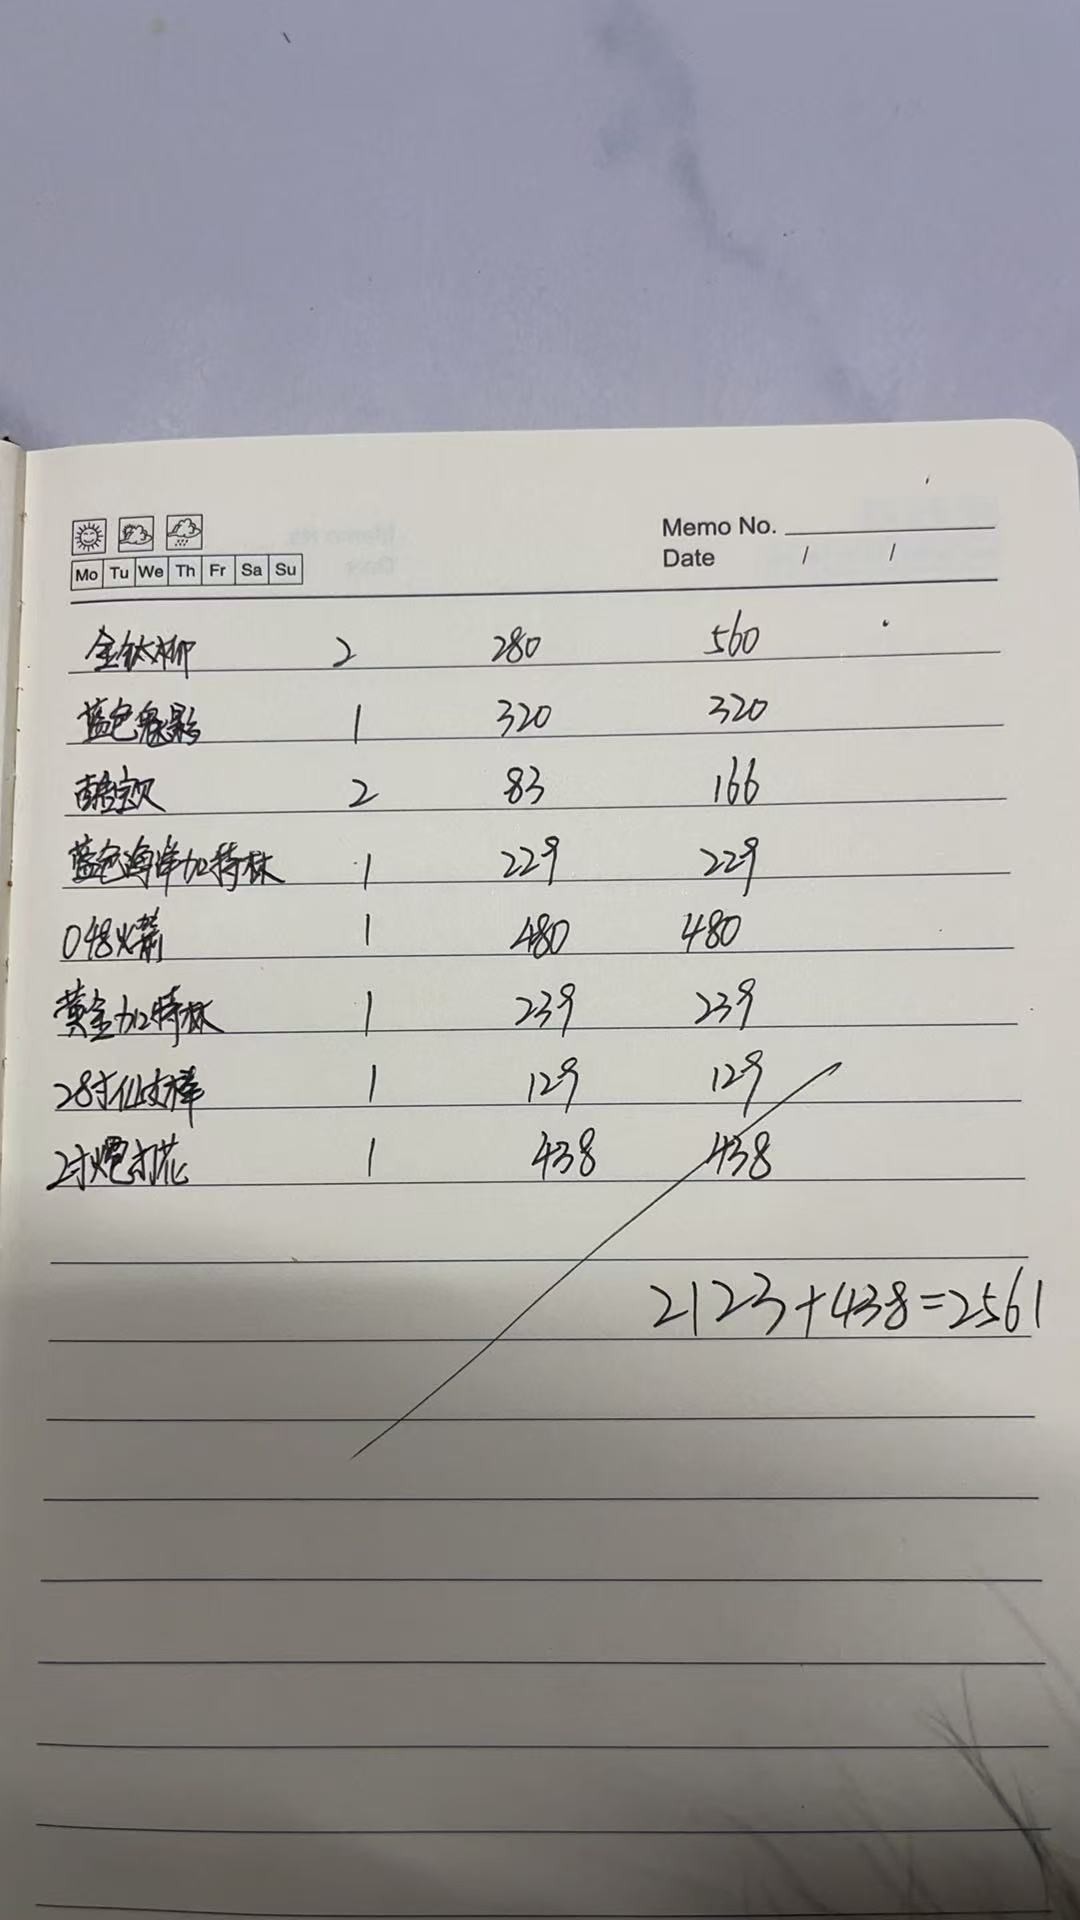 Memo No.
Mo Tu We Th Fr Sa Su
Date / /
金钛柳 2 280 560
蓝色魅影 1 320 320
2 83 166
蓝色海岸加特林 1 229 229
048火箭 1 480 480
黄金加特林 1 239 239
28寸仙女棒 1 129 129
2寸炮打花 1 438 438
2123+438=2561